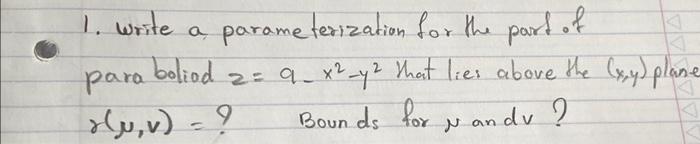 1. Write a parameterization for the part of
paraboliod z = 9 - x² - y² that lies above the (x,y) plane
r(μ,v) = ? Bounds for μ and v ?